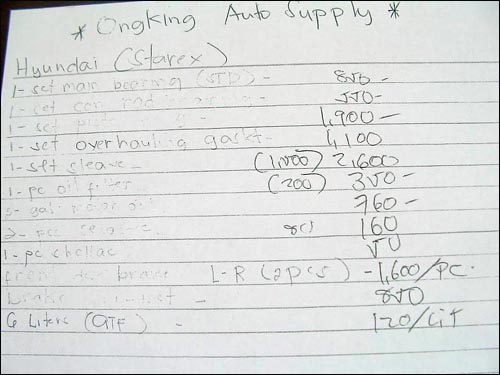 * Ongking Auto Supply *
Hyundai (Starex)
1- set main bearing (STD) - 850 -
1- set con rod bearing - 550 -
1- set 1,900 -
1- set overhauling gasket - 4,100
1- set sleave - (1,000) 2,600
1- pc oil filter (200) 350 -
5- gal 760 -
2- pcs 160
1- pc chellac 50
brake L-R (2pcs) - 1,600/pc.
- 850
6 Liters (ATF) - 120/Lit